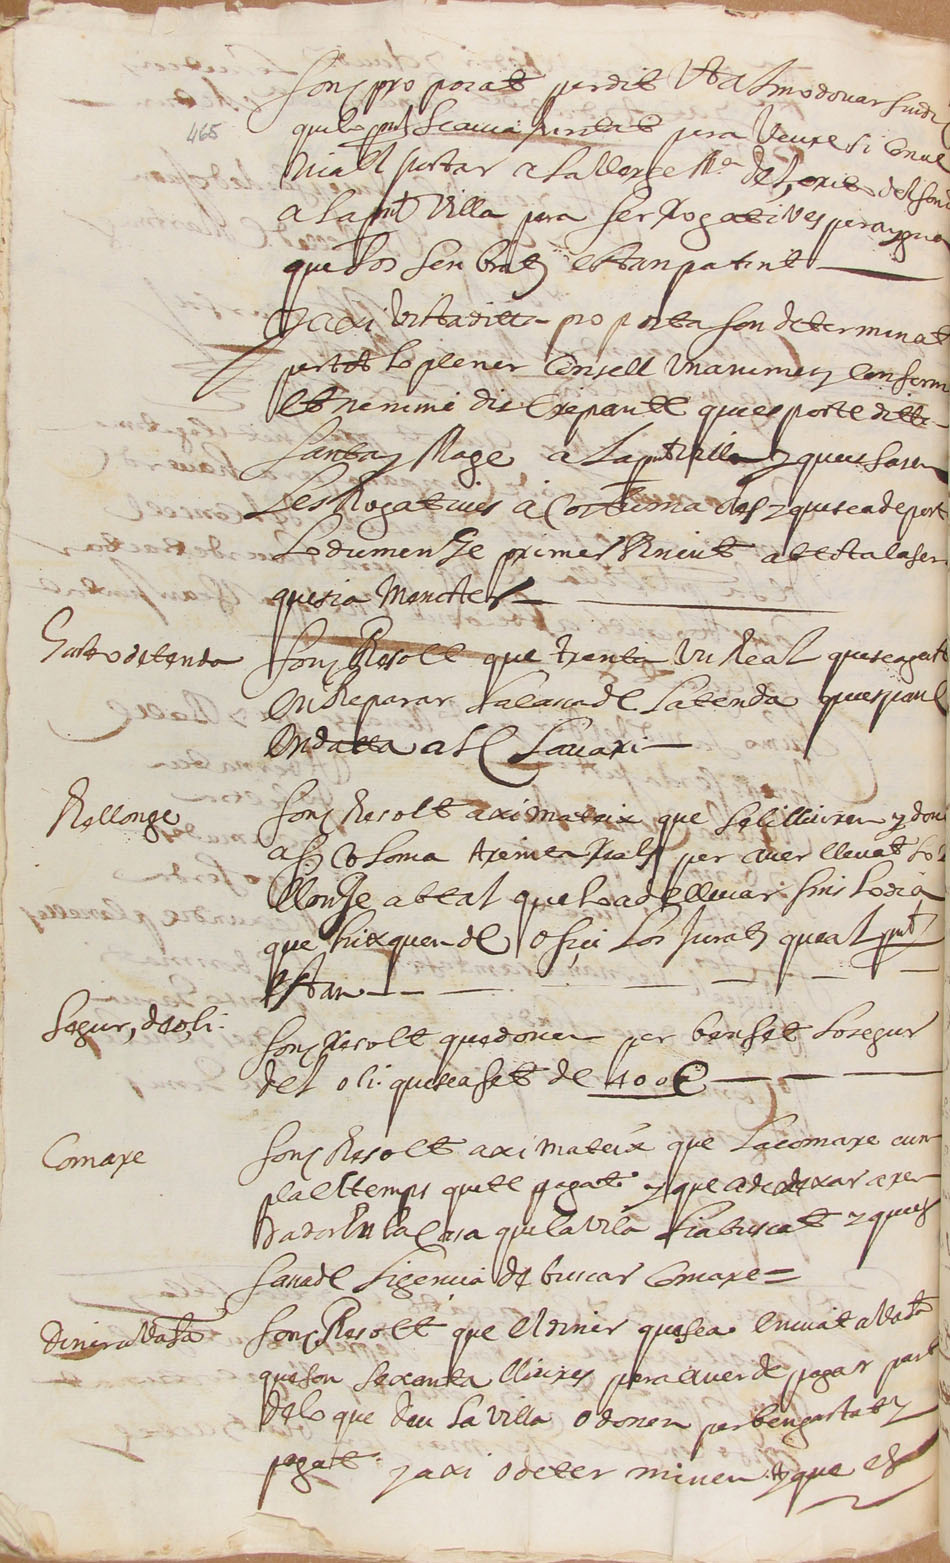 465
fonch proposat per dit Vt almodovar sindi
que lo pnt se avia juntat pera veure si conve
nia el portar a la Verge Mª del Loreto del son
a la pnt villa pera fer Rogatives per aygua
que los sembrats estan patint
y axi vista dita proposta fon determinat
per tot lo plener Consell unanimes y conform
et nemine discrepante que es porte dita
Santa ymage a la pnt villa y ques fasen
les Rogatives acostumades y que sea de port
lo dumenge primer vinent ab tota la sera
que sia menester
Gasto de tenda
fonch Resolt que trenta un Real que sea gastat
en Reparar la casa de la tenda ques pau
en data a
Rellonge
fonch Resolt axi mateix que se li lliuren y don
a Coloma Reals per aver llevat lo Re
llonge ab tal que lo a de llevar fins lo dia
que hixquen de ofici los Jurats que al pnt
estan
Segur, de oli
fonch Resolt que donen per ben fet lo segur
del oli que sea fet de 400 £
Comare
fonch Resolt axi mateix que la comare cum
pla el temps que te pagat y que a de dexar
en la casa que la vila lia buscat y ques
fasa de ligencia de buscar Comare =
fonch Resolt que el diner que sea enviat a
que son sexanta lliures pera aver de pagar part
de lo que deu la villa o donen per ben gastat y
pagat y axi o determinen y que es